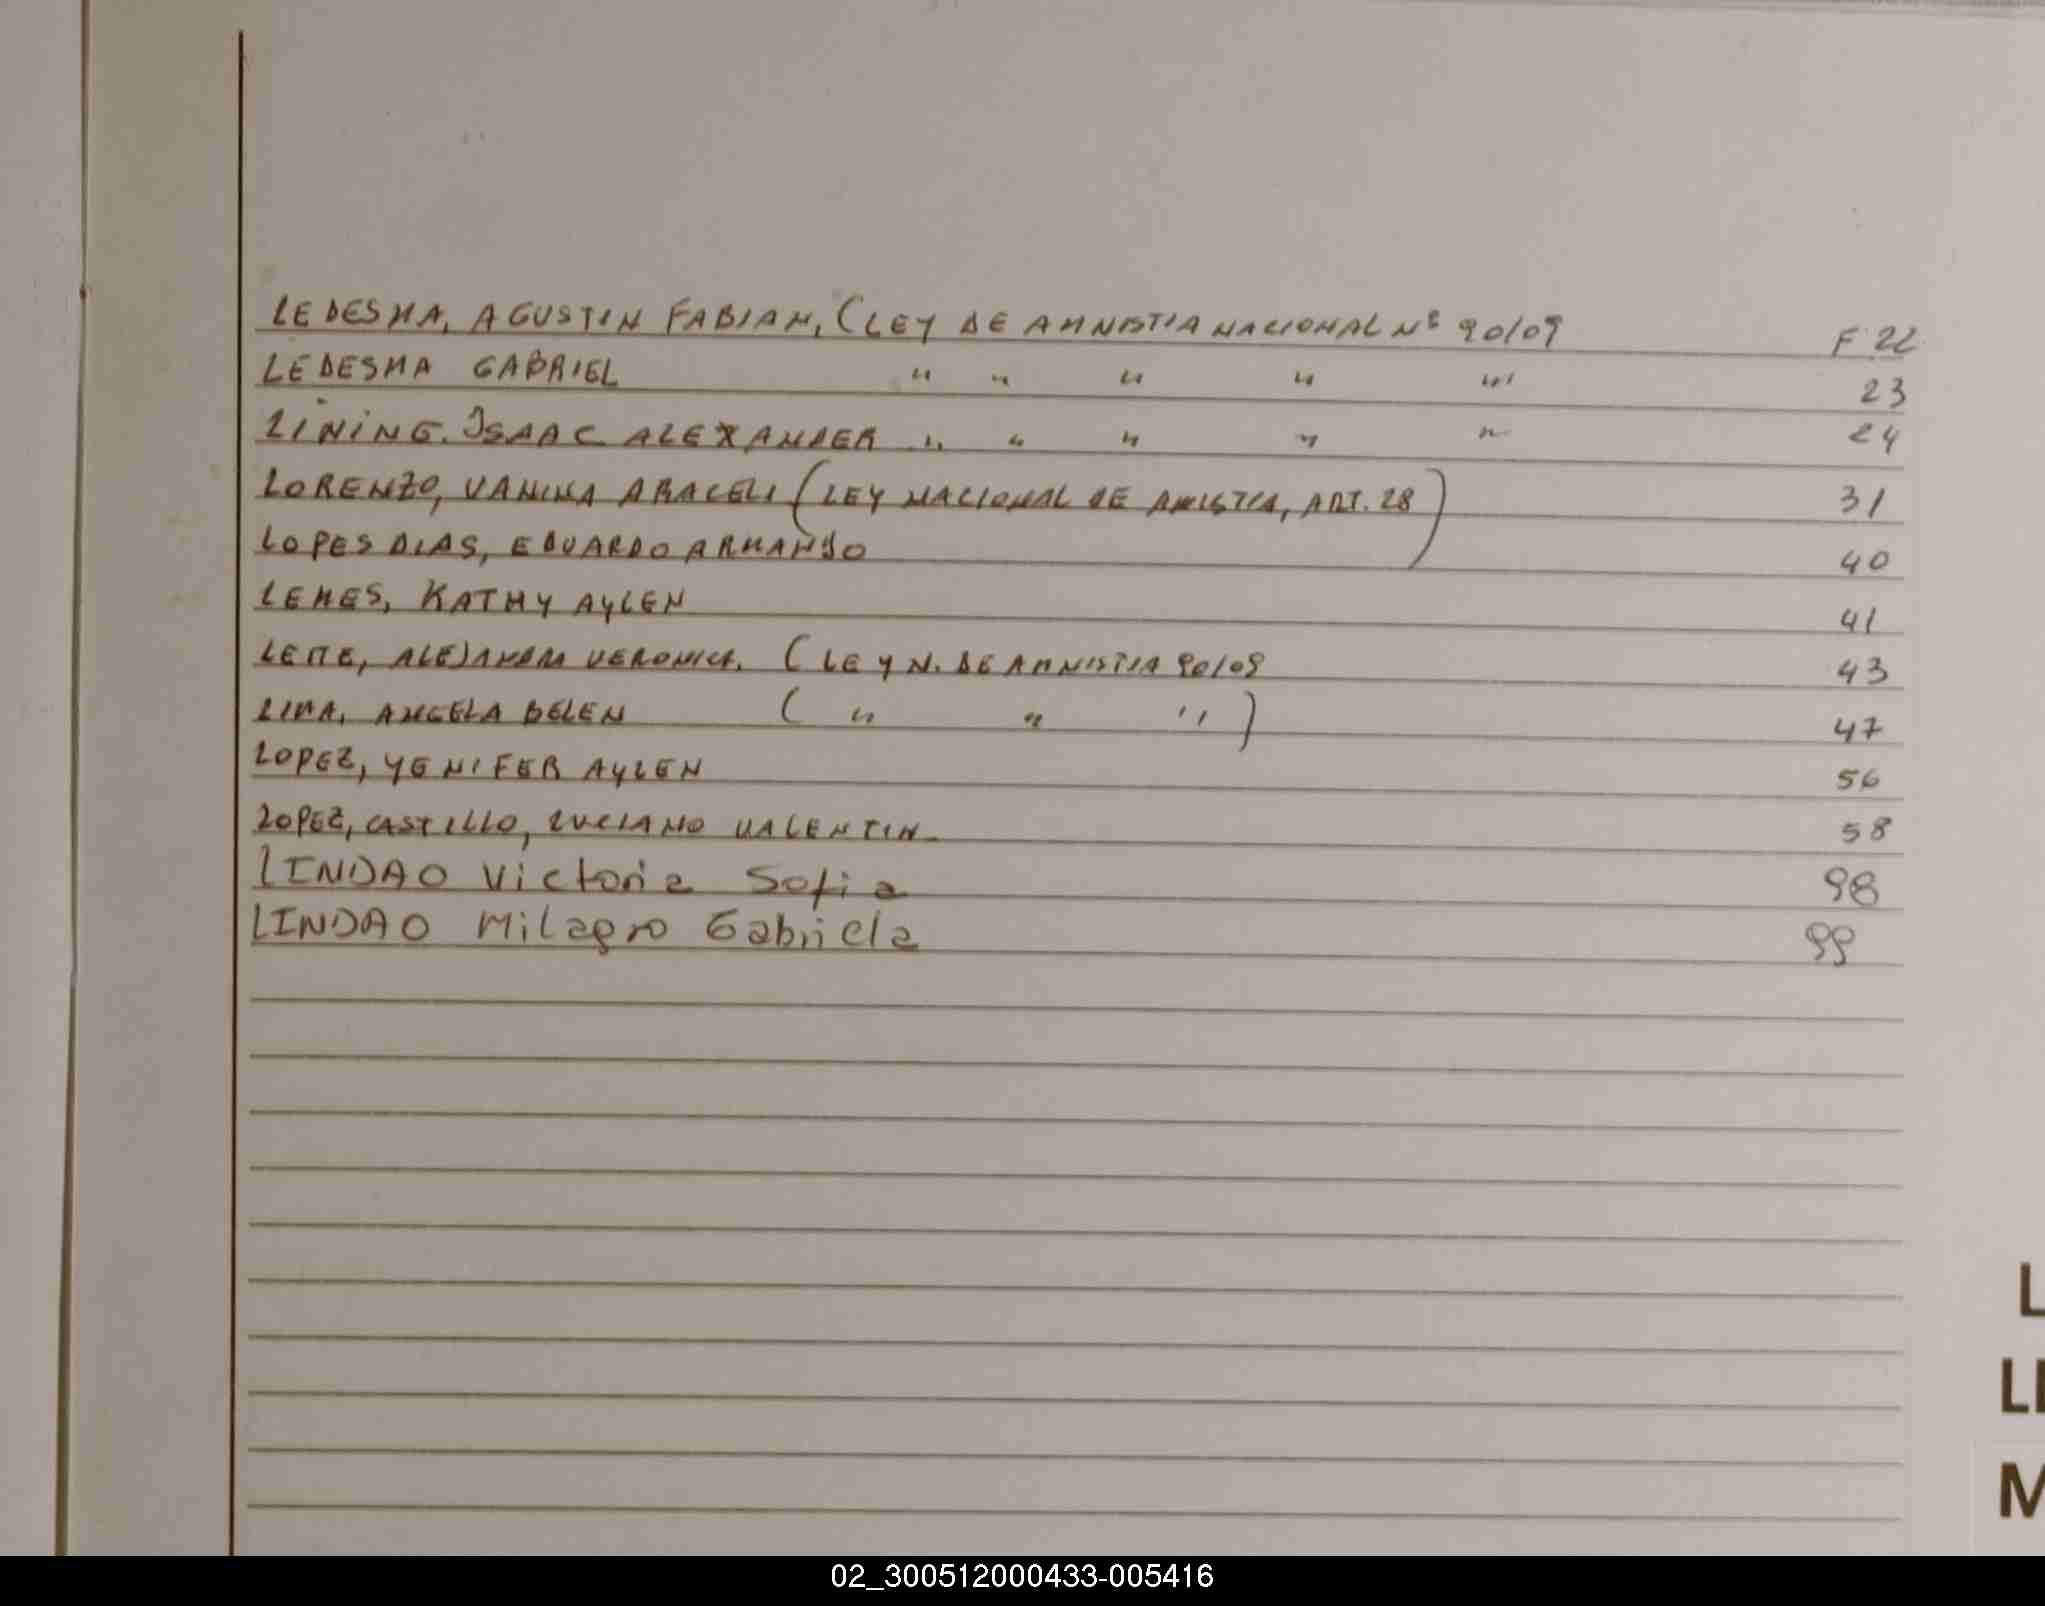 LEDESMA, AGUSTIN FABIAN, (LEY DE AMNISTIA NACIONAL Nº 90/09 F 22
LEDESMA GABRIEL " " " " " 23
LINING. ISAAC ALEXANDER " " " " " 24
LORENZO, VANINA ARACELI (LEY NACIONAL DE AMISTIA, ART. 28) 31
LOPES DIAS, EDUARDO ARMANDO 40
LEMES, KATHY AYLEN 41
LEITE, ALEJANDRA VERONICA. (LEY N. DE AMNISTIA 90/09 43
LIMA, ANGELA BELEN ( " " " ) 47
LOPEZ, YENIFER AYLEN 56
LOPEZ, CASTILLO, LUCIANO VALENTIN 58
LINDAO Victoria Sofia 98
LINDAO Milagro Gabriela 99
L
LL
M
02_300512000433-005416